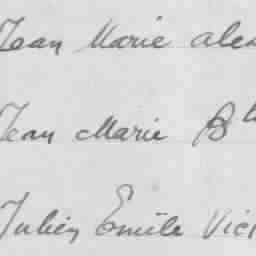 Jean Marie alex
Jean Marie Bte
Julien Emile Vict